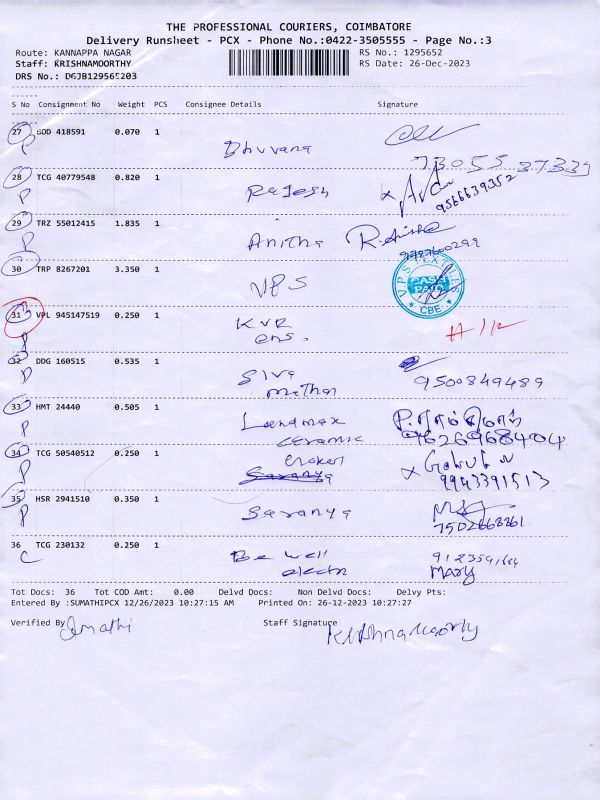 THE PROFESSIONAL COURIERS, COIMBATORE
Delivery Runsheet - PCX - Phone No.:0422-3505555 - Page No.:3
Route: KANNAPPA NAGAR RS No.: 1295652
Staff: KRISHNAMOORTHY RS Date: 26-Dec-2023
DRS No.: DGJB129565203
S No Consignment No Weight PCS Consignee Details Signature
27 BOD 418591 0.070 1
P Bhuvana
73055 37339
28 TCG 40779548 0.820 1
P Rajesh x
9566639352
29 TRZ 55012415 1.835 1
P Anitha R. Anitha
9787600299
30 TRP 8267201 3.350 1
P VPS
V.P.S TEXTILES CBE
31 VPL 945147519 0.250 1
P KVR
ens.
32 DDG 160515 0.535 1
P Siva
methan 9500849489
33 HMT 24440 0.505 1
P Landmax
ceramic 9626968404
34 TCG 50540512 0.250 1
P x Gokul
9943391513
35 HSR 2941510 0.350 1
P Saranya
7502668861
36 TCG 230132 0.250 1
C Be well
electr Mary
Tot Docs: 36 Tot COD Amt: 0.00 Delvd Docs: Non Delvd Docs: Delvy Pts:
Entered By :SUMATHIPCX 12/26/2023 10:27:15 AM Printed On: 26-12-2023 10:27:27
Verified By Staff Signature Krishnamoorthy